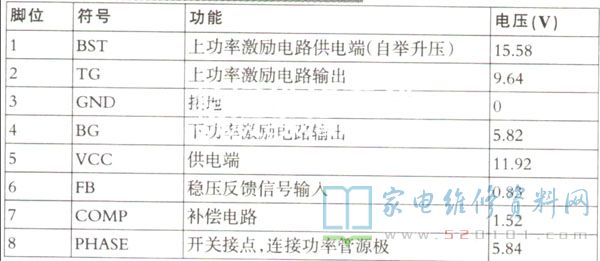 脚位 符号 功能 电压(V)
1 BST 上功率激励电路供电端(自举升压) 15.58
2 TG 上功率激励电路输出 9.64
3 GND 接地 0
4 BG 下功率激励电路输出 5.82
5 VCC 供电端 11.92
6 FB 稳压反馈信号输入 0.83
7 COMP 补偿电路 1.52
8 PHASE 开关接点,连接功率管源极 5.84
家电维修资料网
www.520101.com